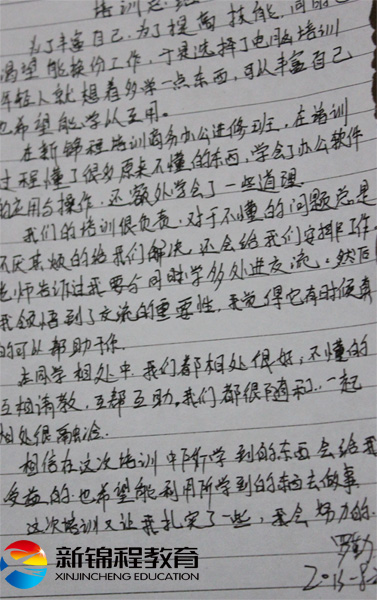 培训总结
为了丰富自己,为了提高技能,同时也
渴望能换份工作,于是选择了电脑培训
年轻人就想着多学一点东西,可以丰富自己
也希望能学以至用。
在新锦程培训商务办公进修班,在培训
过程懂了很多原来不懂的东西,学会了办公软件
的应用与操作,还额外学会了一些道理
我们的培训很负责,对于不懂的问题总是
不厌其烦的给我们解决,还会给我们安排工作
老师告诉过我要与同时学多处进交流。然后
我领悟到了交流的重要性,我觉得它有时候真
的可以帮助于你
在同学相处中,我们都相处很好,不懂的
互相请教,互帮互助。我们都很随和,一起
相处很融洽.
相信在这次培训中所学到的东西会给我
受益的.也希望能利用所学到的东西去做事
这次培训又让我扎实了一些,我会努力的.
新锦程教育
XINJINCHENG EDUCATION